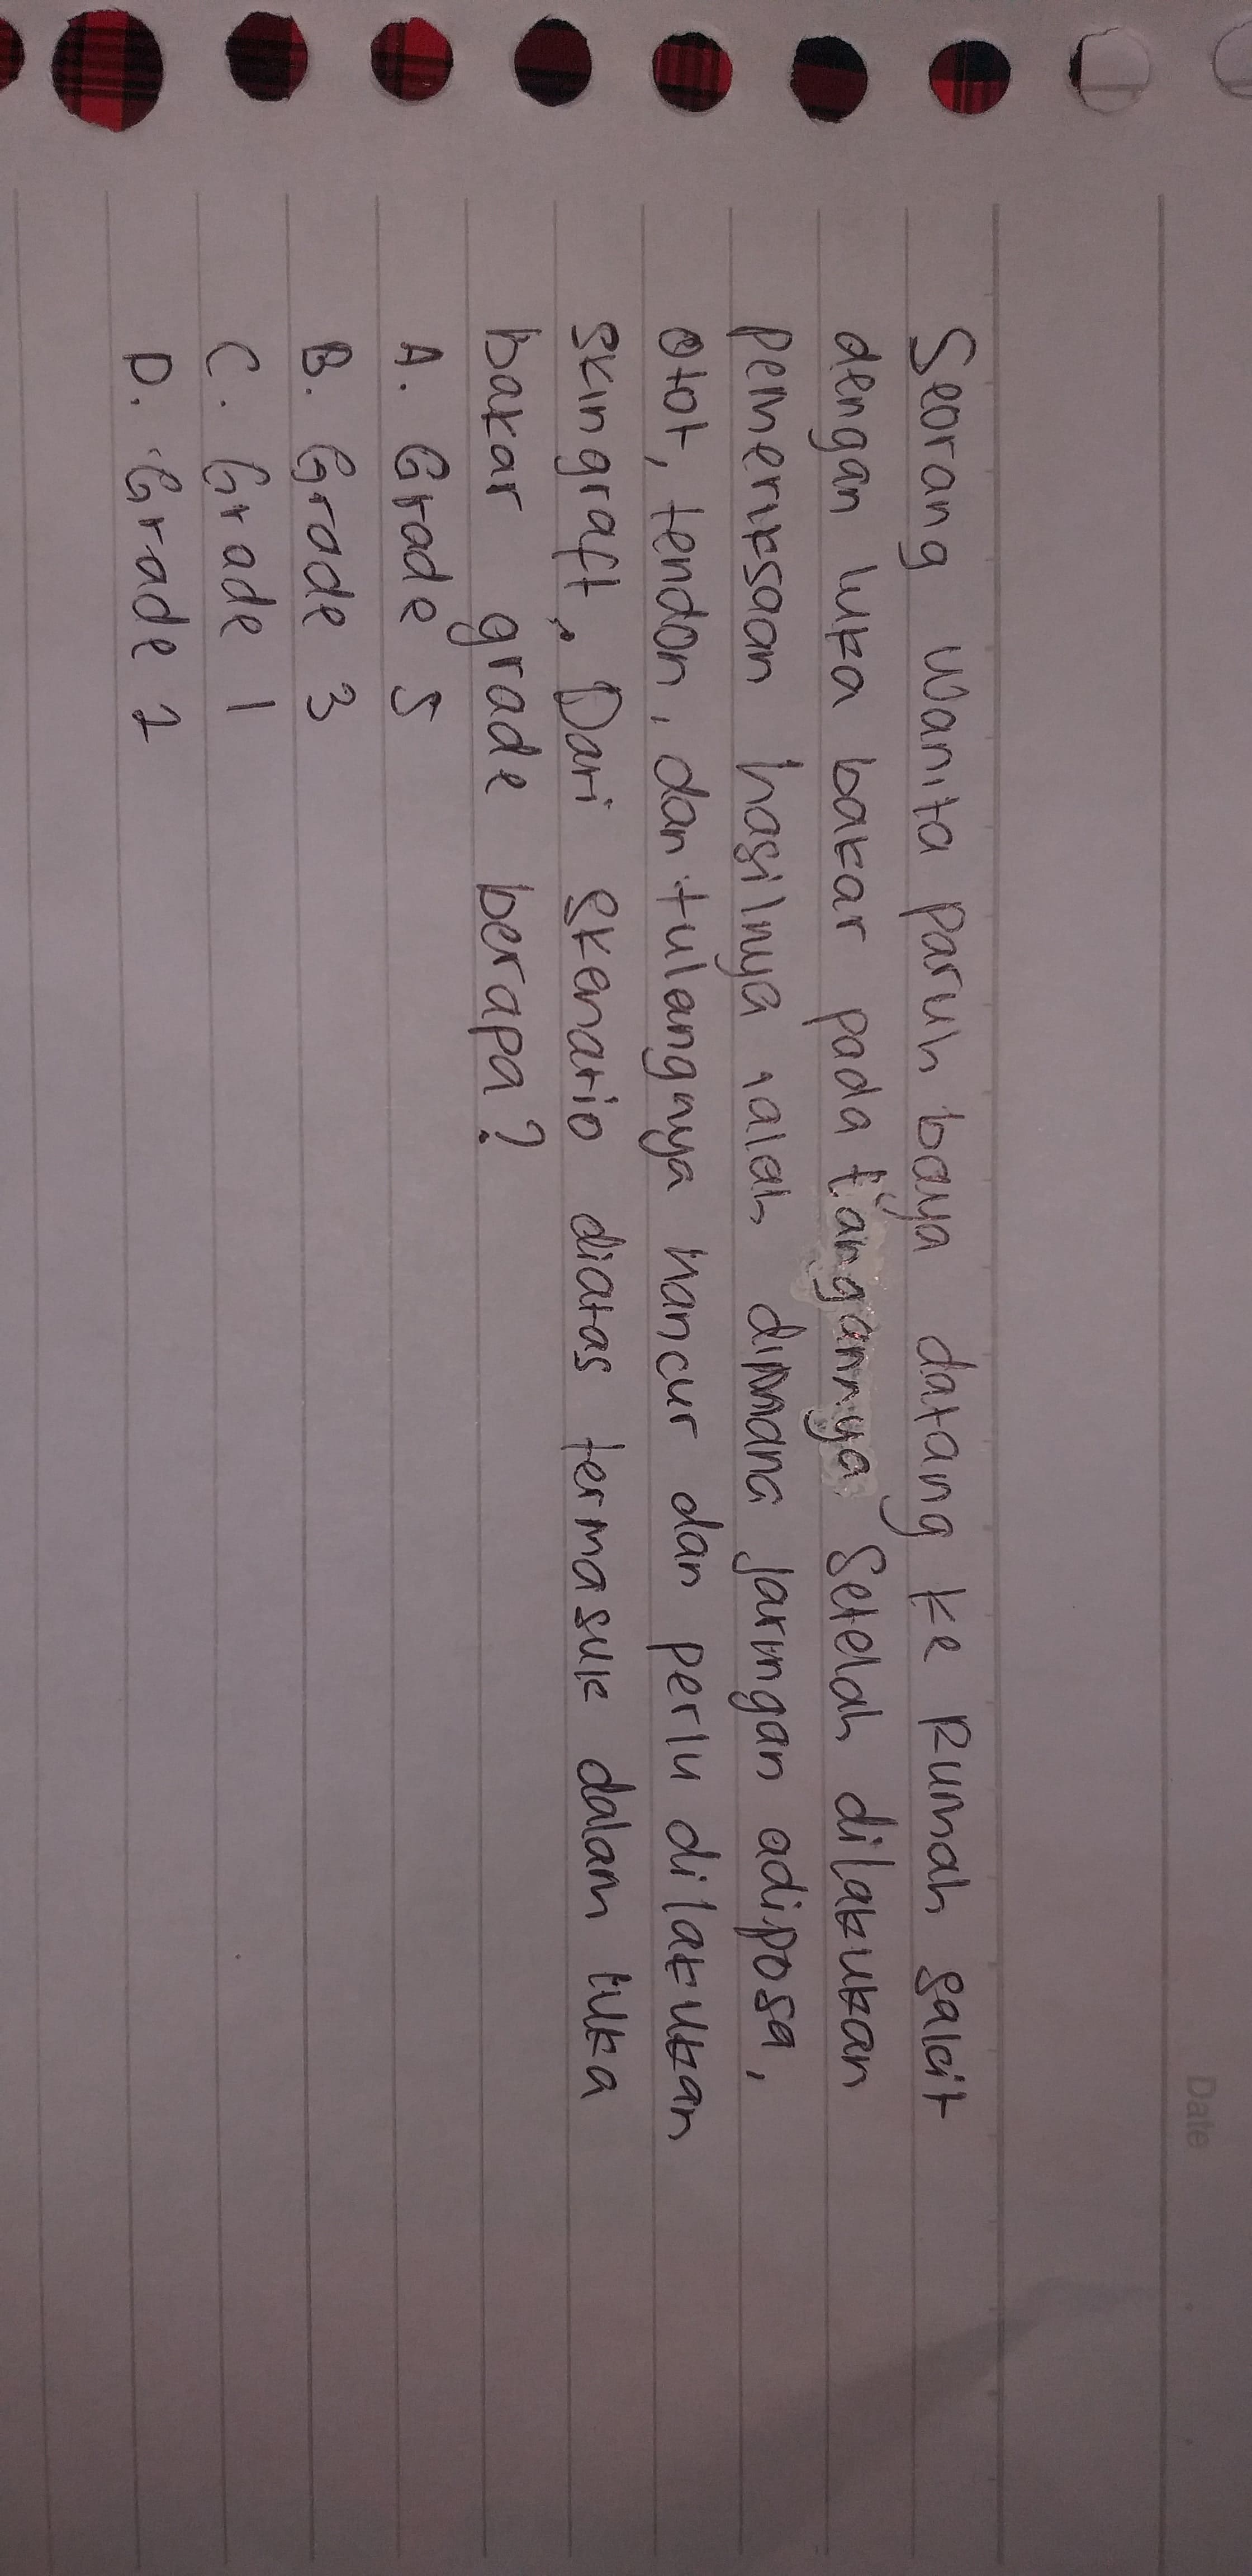 Date
Seorang wanita paruh baya datang ke Rumah sakit
dengan luka bakar pada tangannya Setelah dilakukan
pemeriksaan hasilnya ialah dimana jaringan adiposa,
otot, tendon, dan tulangnya hancur dan perlu dilakukan
skin graft, Dari skenario diatas termasuk dalam luka
bakar grade berapa?
A. Grade 5
B. Grade 3
C. Grade 1
D. Grade 2